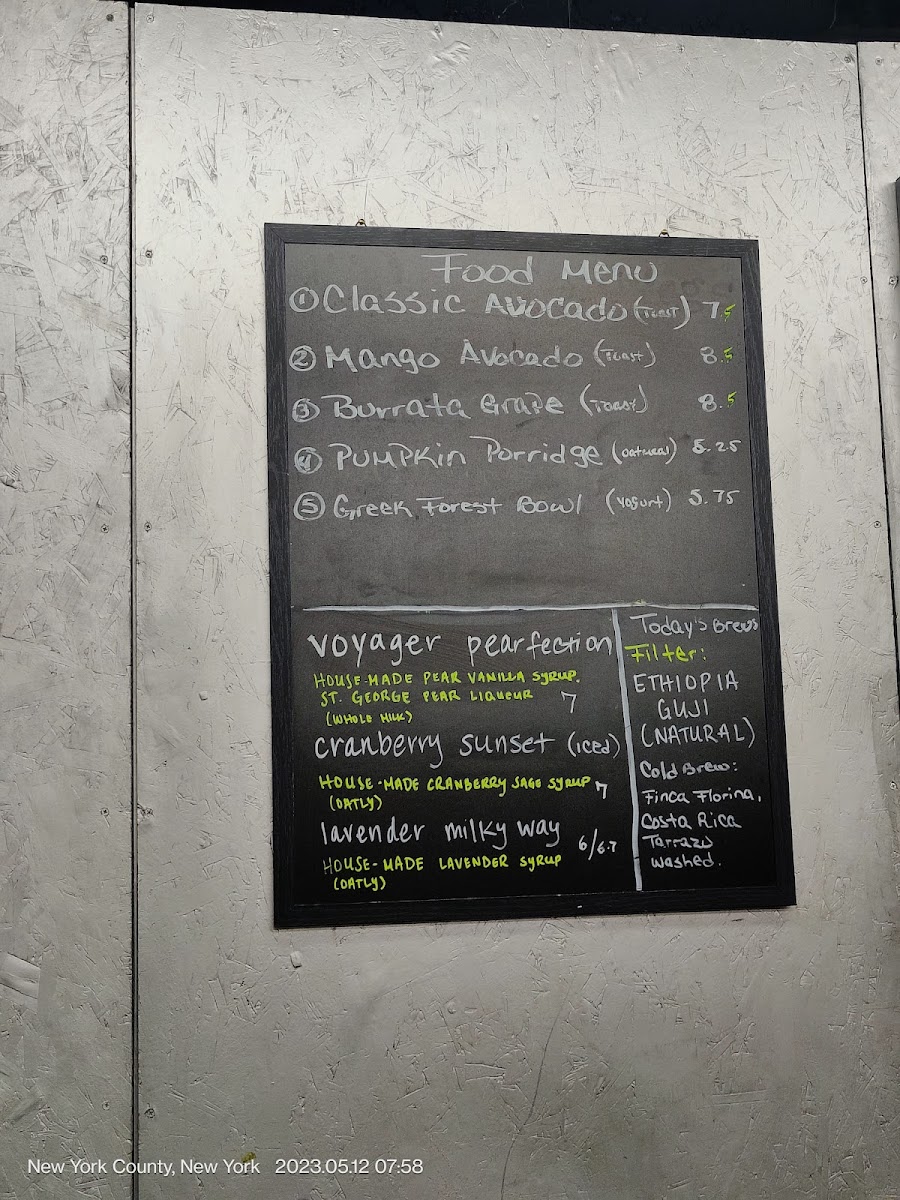 Food Menu
① Classic Avocado (Toast) 7.5
② Mango Avocado (Toast) 8.5
③ Burrata Grape (Toast) 8.5
④ Pumpkin Porridge (oatmeal) 5.25
⑤ Greek Forest Bowl (Yogurt) 5.75
voyager pearfection
HOUSE-MADE PEAR VANILLA SYRUP.
ST. GEORGE PEAR LIQUEUR 7
(WHOLE MILK)
cranberry sunset (iced)
HOUSE-MADE CRANBERRY SAGE SYRUP 7
(OATLY)
lavender milky way 6/6.7
HOUSE-MADE LAVENDER SYRUP
(OATLY)
Today's Brews
Filter:
ETHIOPIA
GUJI
(NATURAL)
Cold Brew:
Finca Florina,
Costa Rica
Tarrazu
washed.
New York County, New York 2023.05.12 07:58